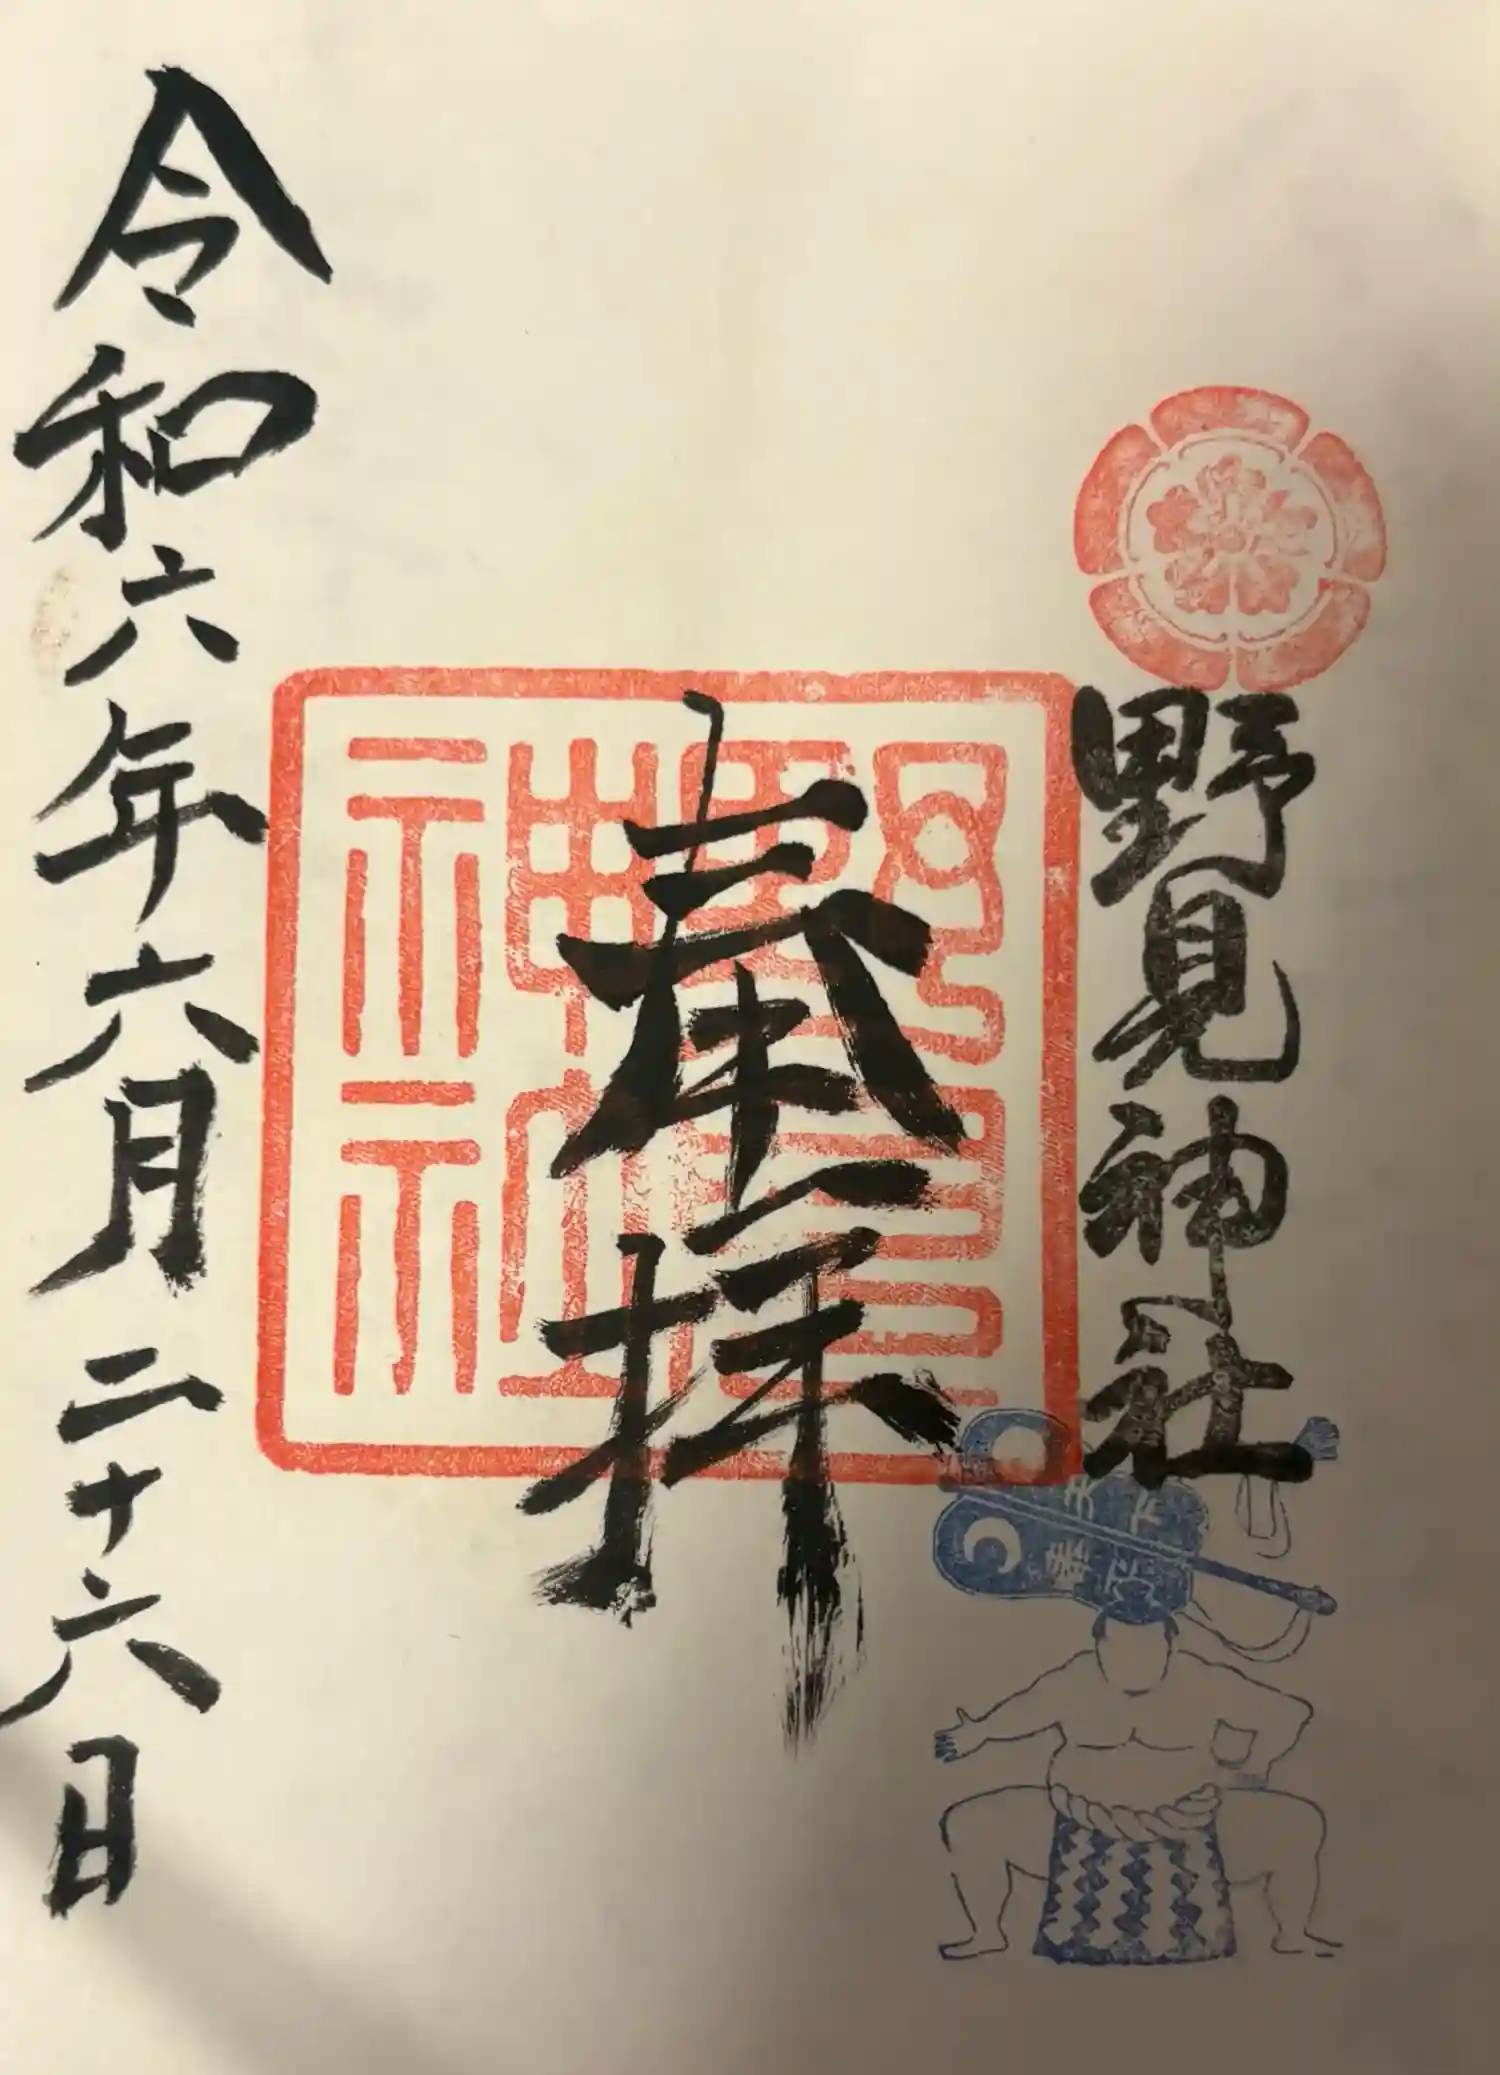 野見神社
奉拝
野見神社
令和六年六月二十六日